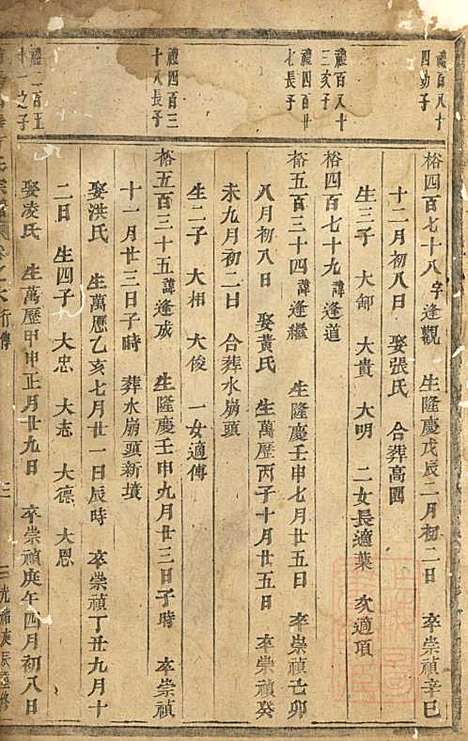 禮百八十
四幼子
裕四百七十八字逢觀 生隆慶戊辰二月初二日 卒崇禎辛巳
十二月初八日 娶張氏 合葬高園
生三子 大卸 大貴 大明 二女長適葉 次適項
禮百八十
三亥子
裕四百七十九諱逢道
禮四百廿
七長子
裕五百三十四諱逢繼 生隆慶壬申七月廿五日 卒崇禎己卯
八月初八日 娶黃氏 生萬歷丙子十月廿五日 卒崇禎癸
未九月初二日 合葬水崩頭
生二子 大相 大俊 一女適傳
禮四百三
十八長子
裕五百三十五諱逢成 生隆慶壬申九月廿三日子時 卒崇禎
十一月廿三日子時 葬水崩頭新墳
娶洪氏 生萬歷乙亥七月廿一日辰時 卒崇禎丁丑九月十
二日 生四子 大忠 大志 大德 大恩
禮二百五
十一之子
娶凌氏 生萬歷甲申正月廿九日 卒崇禎庚午四月初八日
行傳